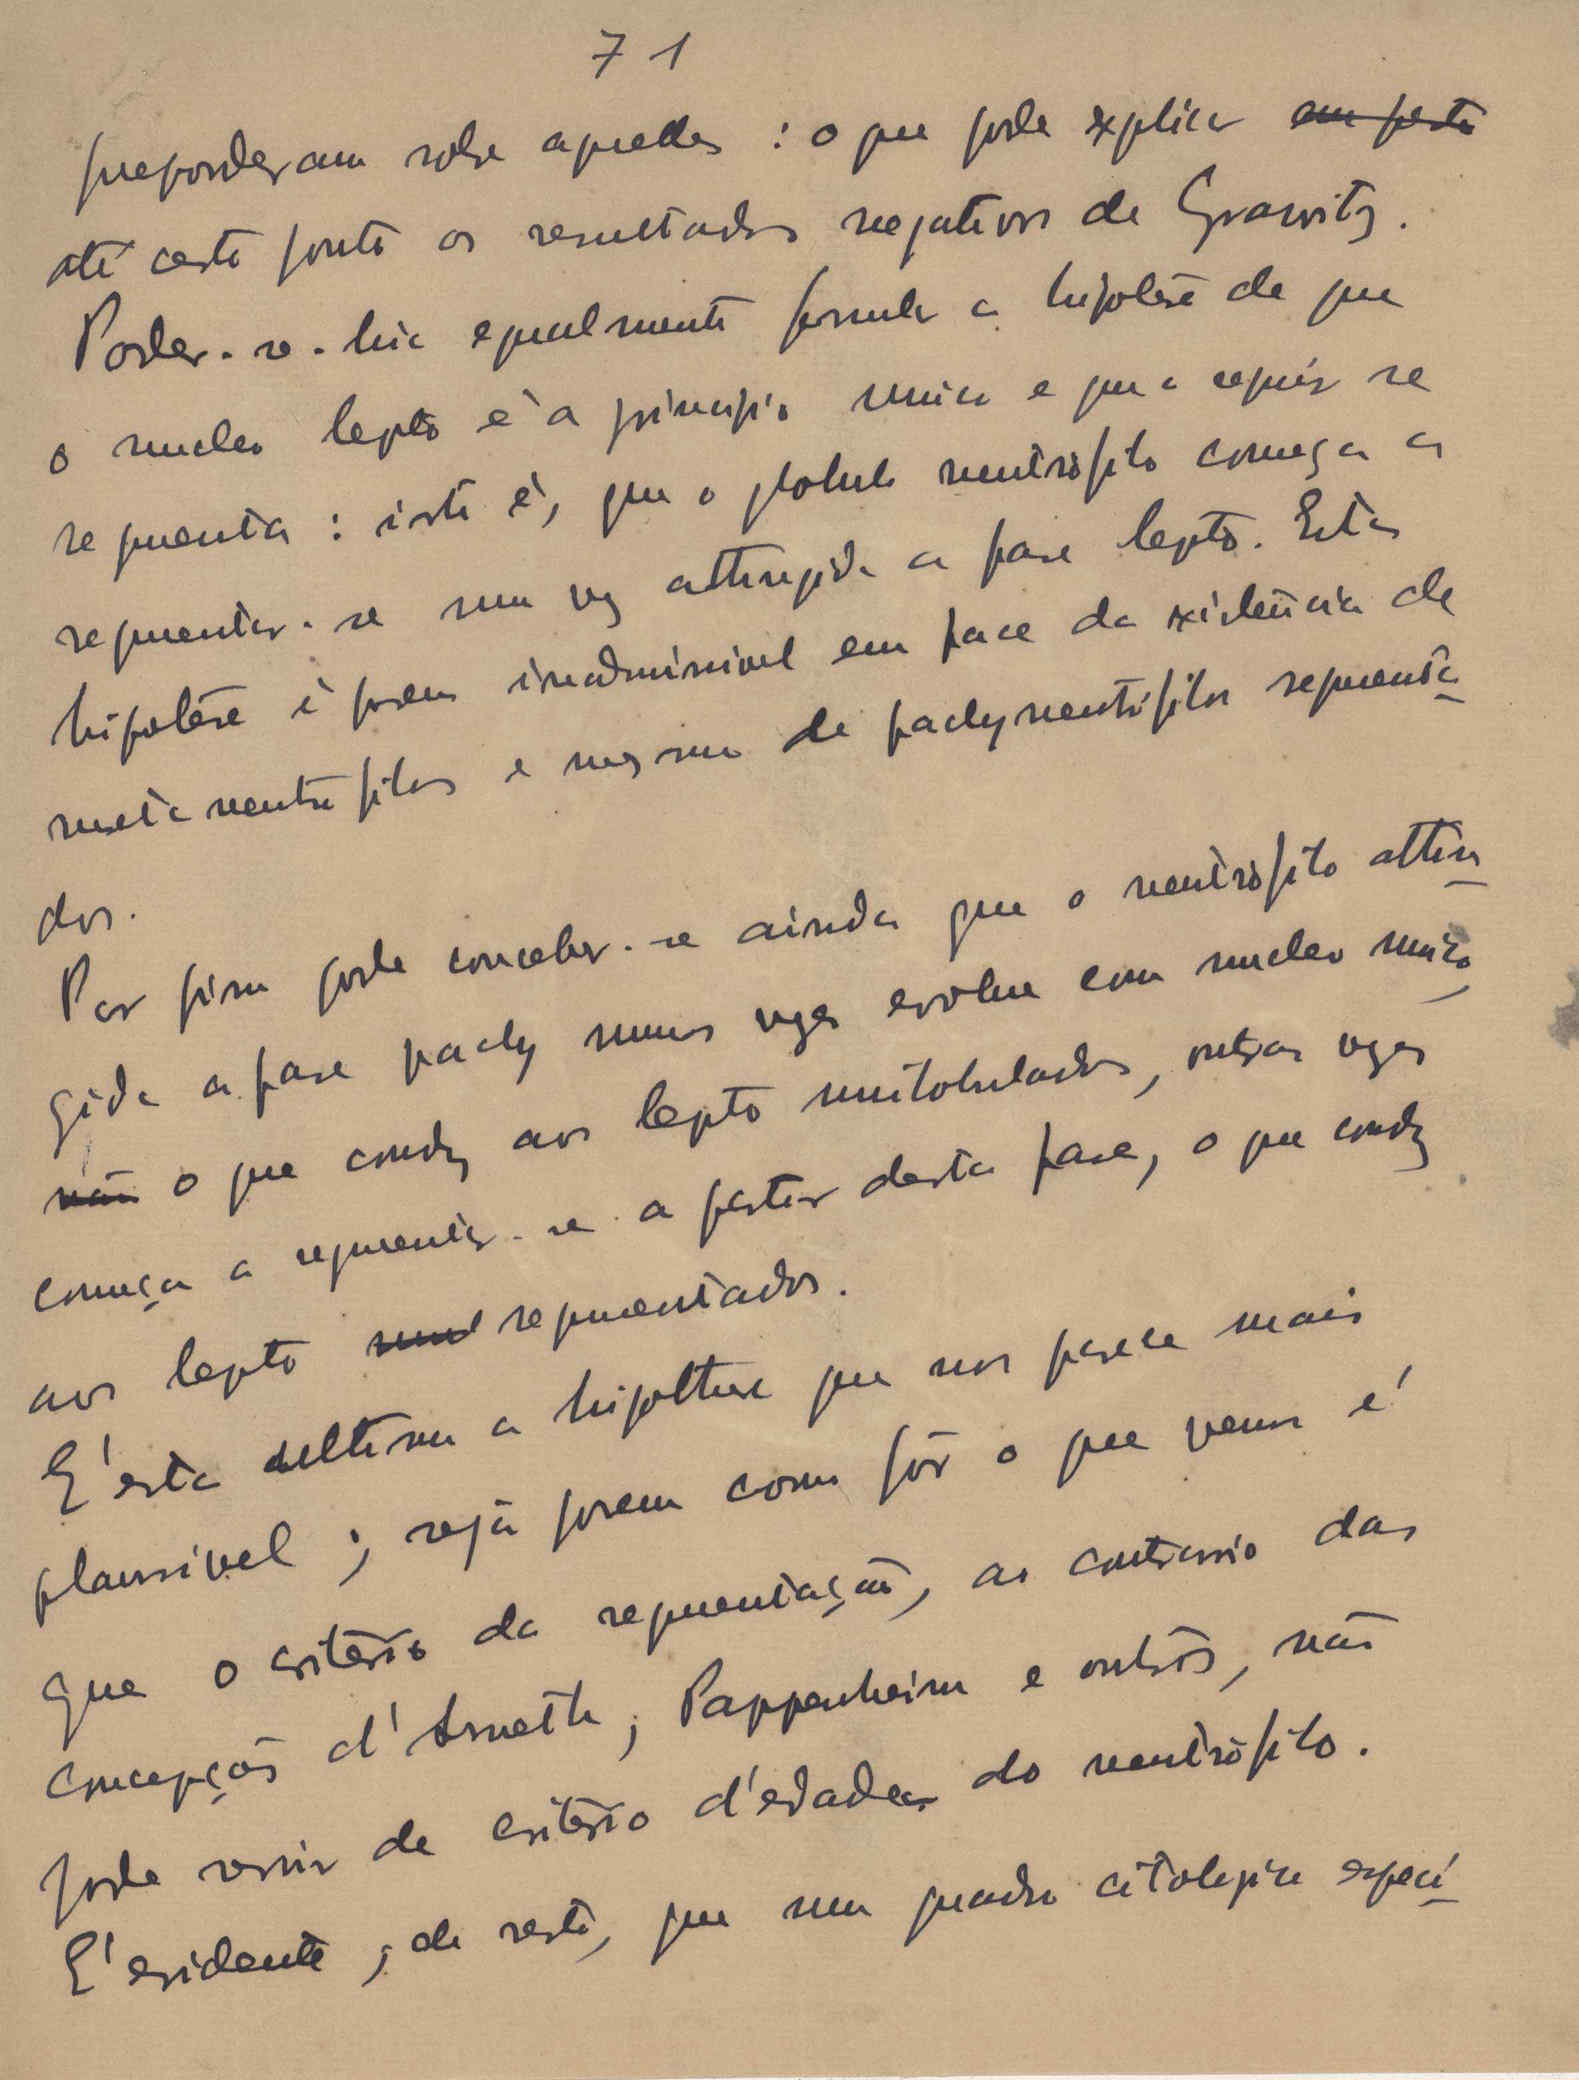 71
preponderam sobre aquelles : o que pode explicar em parte
até certo ponto os resultados negativos de Grawitz.
Poder-se-hia egualmente formular a hipotese de que
o nucleo lepto é a principio unico e que a seguir se
segmenta : isto é, que o globulo neutrófilo começa a
segmentar-se uma vez attingida a fase lepto. Esta
hipotese é porem inadmissivel em face da existencia de
metaneutrofilos e mesmo de pachyneutrófilos segmenta-
dos.
Por fim pode conceber-se ainda que o neutrófilo attin-
gida a fase pachy umas vezes evolue com nucleo unico,
não o que condiz aos lepto unilobulados, outras vezes
começa a segmentar-se a partir desta fase, o que condiz
aos lepto segmentados.
E' esta ultima a hipothese que nos parece mais
plausivel ; seja porem como fôr o que vemos é
que o critério da segmentação, ao contrario das
concepções d'Arneth, Pappenheim e outros, não
pode servir de critério d'edades do neutrófilo.
E' evidente, de resto, que um quadro citologico especi-